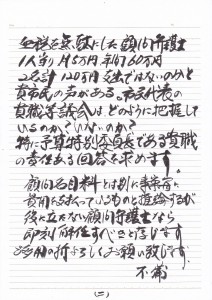 血税を無駄にした顧問弁護士
1人当り月5万円 年間60万円
2名計 120万支出ではないのかと
貴市民の声がある。市民代表の
貴職等議会は、どのように把握して
いるのか？いないのか？
特に予算特別委員長である貴職
の責任ある回答を求めます。
顧問名目料とは別に事案毎に
費用を支払っているものと推論するが
役に立たない顧問弁護士なら
即刻解任すべきと信じます。
ご多用の折よろしくお願い致します。
不備
(二)